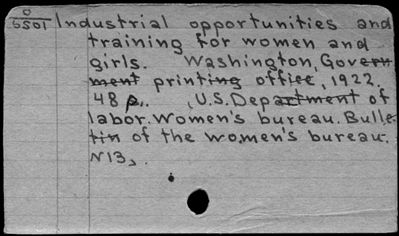 0
6501 Industrial opportunities and
training for women and
girls. Washington, Govern-
ment printing office, 1922.
48 p. (U.S. Department of
labor. Women's bureau. Bulle-
tin of the women's bureau.
N13)